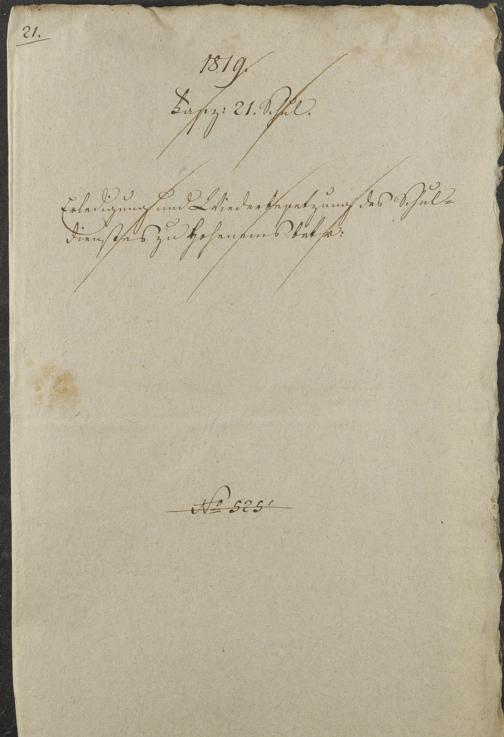 21.
1819.
Fasz: 21. Schul.
Erledigung und Wiederbesetzung des Schul-
dienstes zu Hohenems betr:
No 525